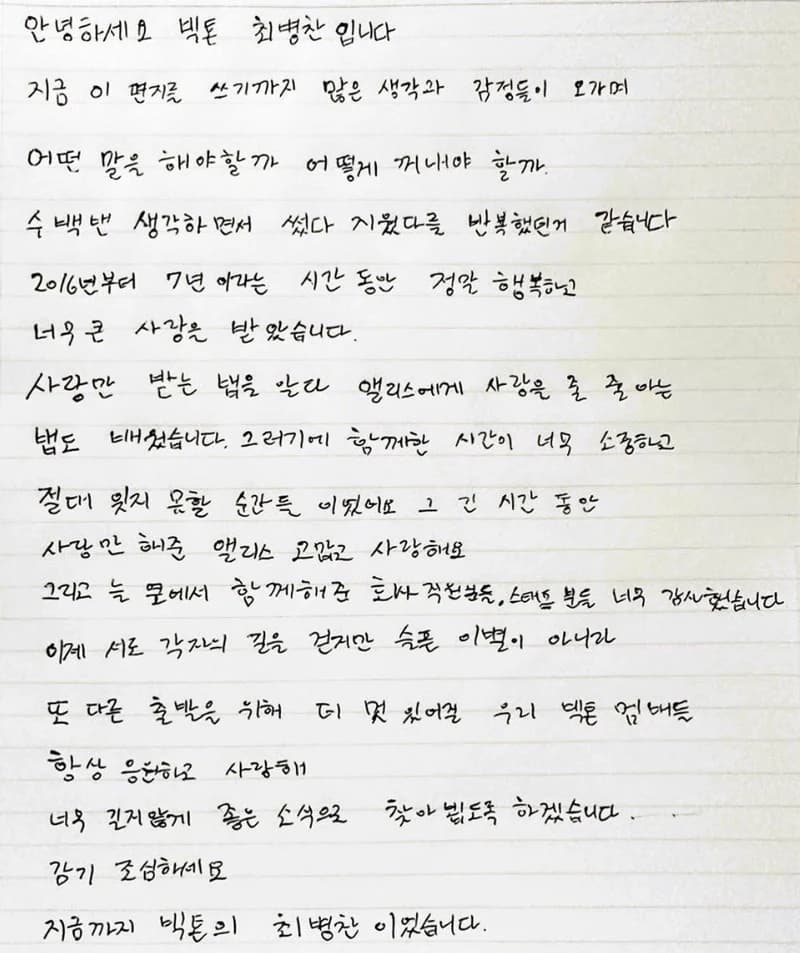 안녕하세요 빅톤 최병찬입니다
지금 이 편지를 쓰기까지 많은 생각과 감정들이 오가며
어떤 말을 해야할까 어떻게 꺼내야 할까.
수백번 생각하면서 썼다 지웠다를 반복했던거 같습니다
2016년부터 7년 이라는 시간 동안 정말 행복하고
너무 큰 사랑을 받았습니다.
사랑만 받는 법을 알다 앨리스에게 사랑을 줄 줄 아는
법도 배웠습니다. 그러기에 함께한 시간이 너무 소중하고
절대 잊지 못할 순간들 이었어요 그 긴 시간 동안
사랑만 해준 앨리스 고맙고 사랑해요
그리고 늘 옆에서 함께해준 회사 직원분들, 스태프 분들 너무 감사했습니다
이제 서로 각자의 길을 걷지만 슬픈 이별이 아니라
또 다른 출발을 위해 더 멋있어질 우리 빅톤 멤버들
항상 응원하고 사랑해
너무 길지않게 좋은 소식으로 찾아뵙도록 하겠습니다...
감기 조심하세요
지금까지 빅톤의 최병찬이었습니다.